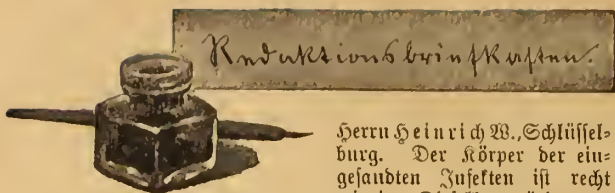 Redaktionsbriefkasten.
Herrn Heinrich W., Schlüssel⸗
burg. Der Körper der ein⸗
gesandten Insekten ist recht